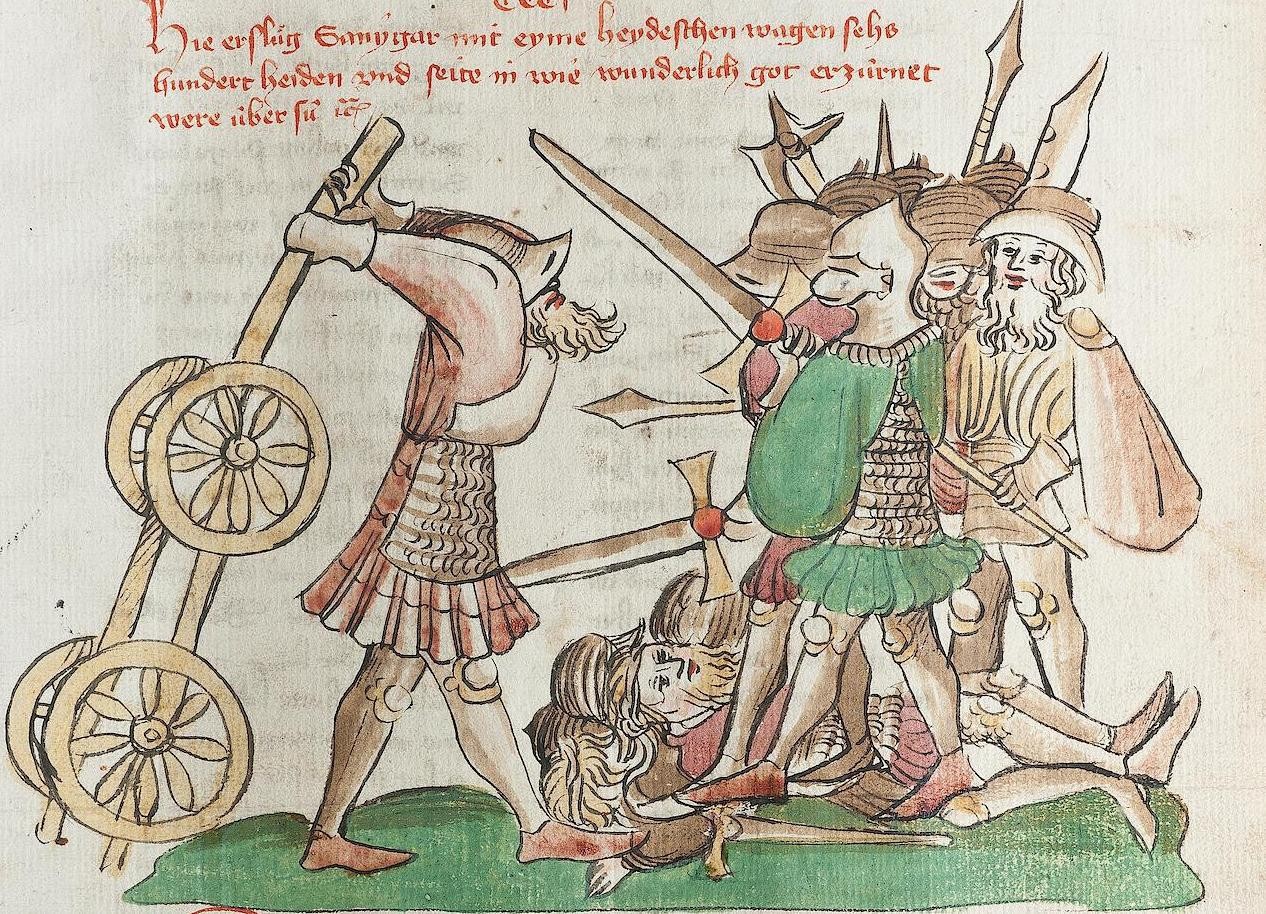 Hie ersluͦg Sanygar mit eyme heydeschen wagen sehs
hundert heiden vnd seite in wie wunderlich got erzúrnet
were úber sú